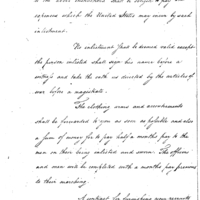 expences which the United States may incur by such
inlistment.
No enlistment shall be deemed valid except
the person inlisted shall sign his name before a
and take the oath as directed by the articles of
war before a magistrate.
The clothing arms and accoutrements
shall be forwarded to you as soon as possible and also
a sum of money for to pay half a months pay to the
men on their being inlisted and sworn. The officers
and men will be completed with a months pay previous
to their marching.
A contract for furnishing your recruits